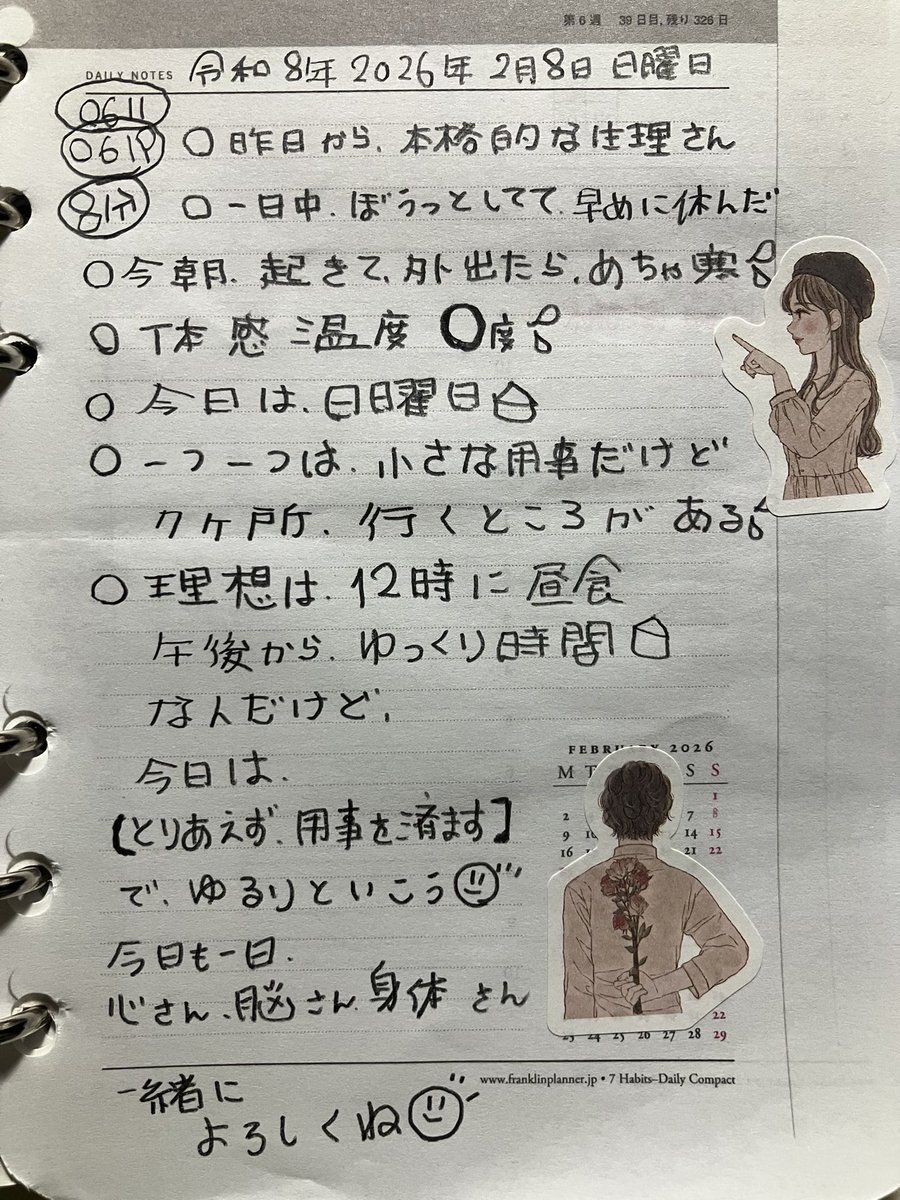 第6週 39日目,残り326日
DAILY NOTES 令和8年 2026年 2月8日 日曜日
0611
0619
8分
○昨日から、本格的な生理さん
○一日中、ぼうっとしてて、早めに休んだ
○今朝、起きて、外出たら、めちゃ寒
○体感温度 0度
○今日は、日曜日
○一つ一つは、小さな用事だけど
クヶ所、行くところがある
○理想は、12時に昼食
午後から、ゆっくり時間
なんだけど、
今日は、
【とりあえず、用事を済ます】
で、ゆるりといこう
今日も一日、
心さん、脳さん、身体さん
一緒に
よろしくね
FEBRUARY 2026
M T S S
1
2 7 8
9 10 14 15
16 21 22
22
23 24 25 26 27 28 29
www.franklinplanner.jp • 7 Habits–Daily Compact